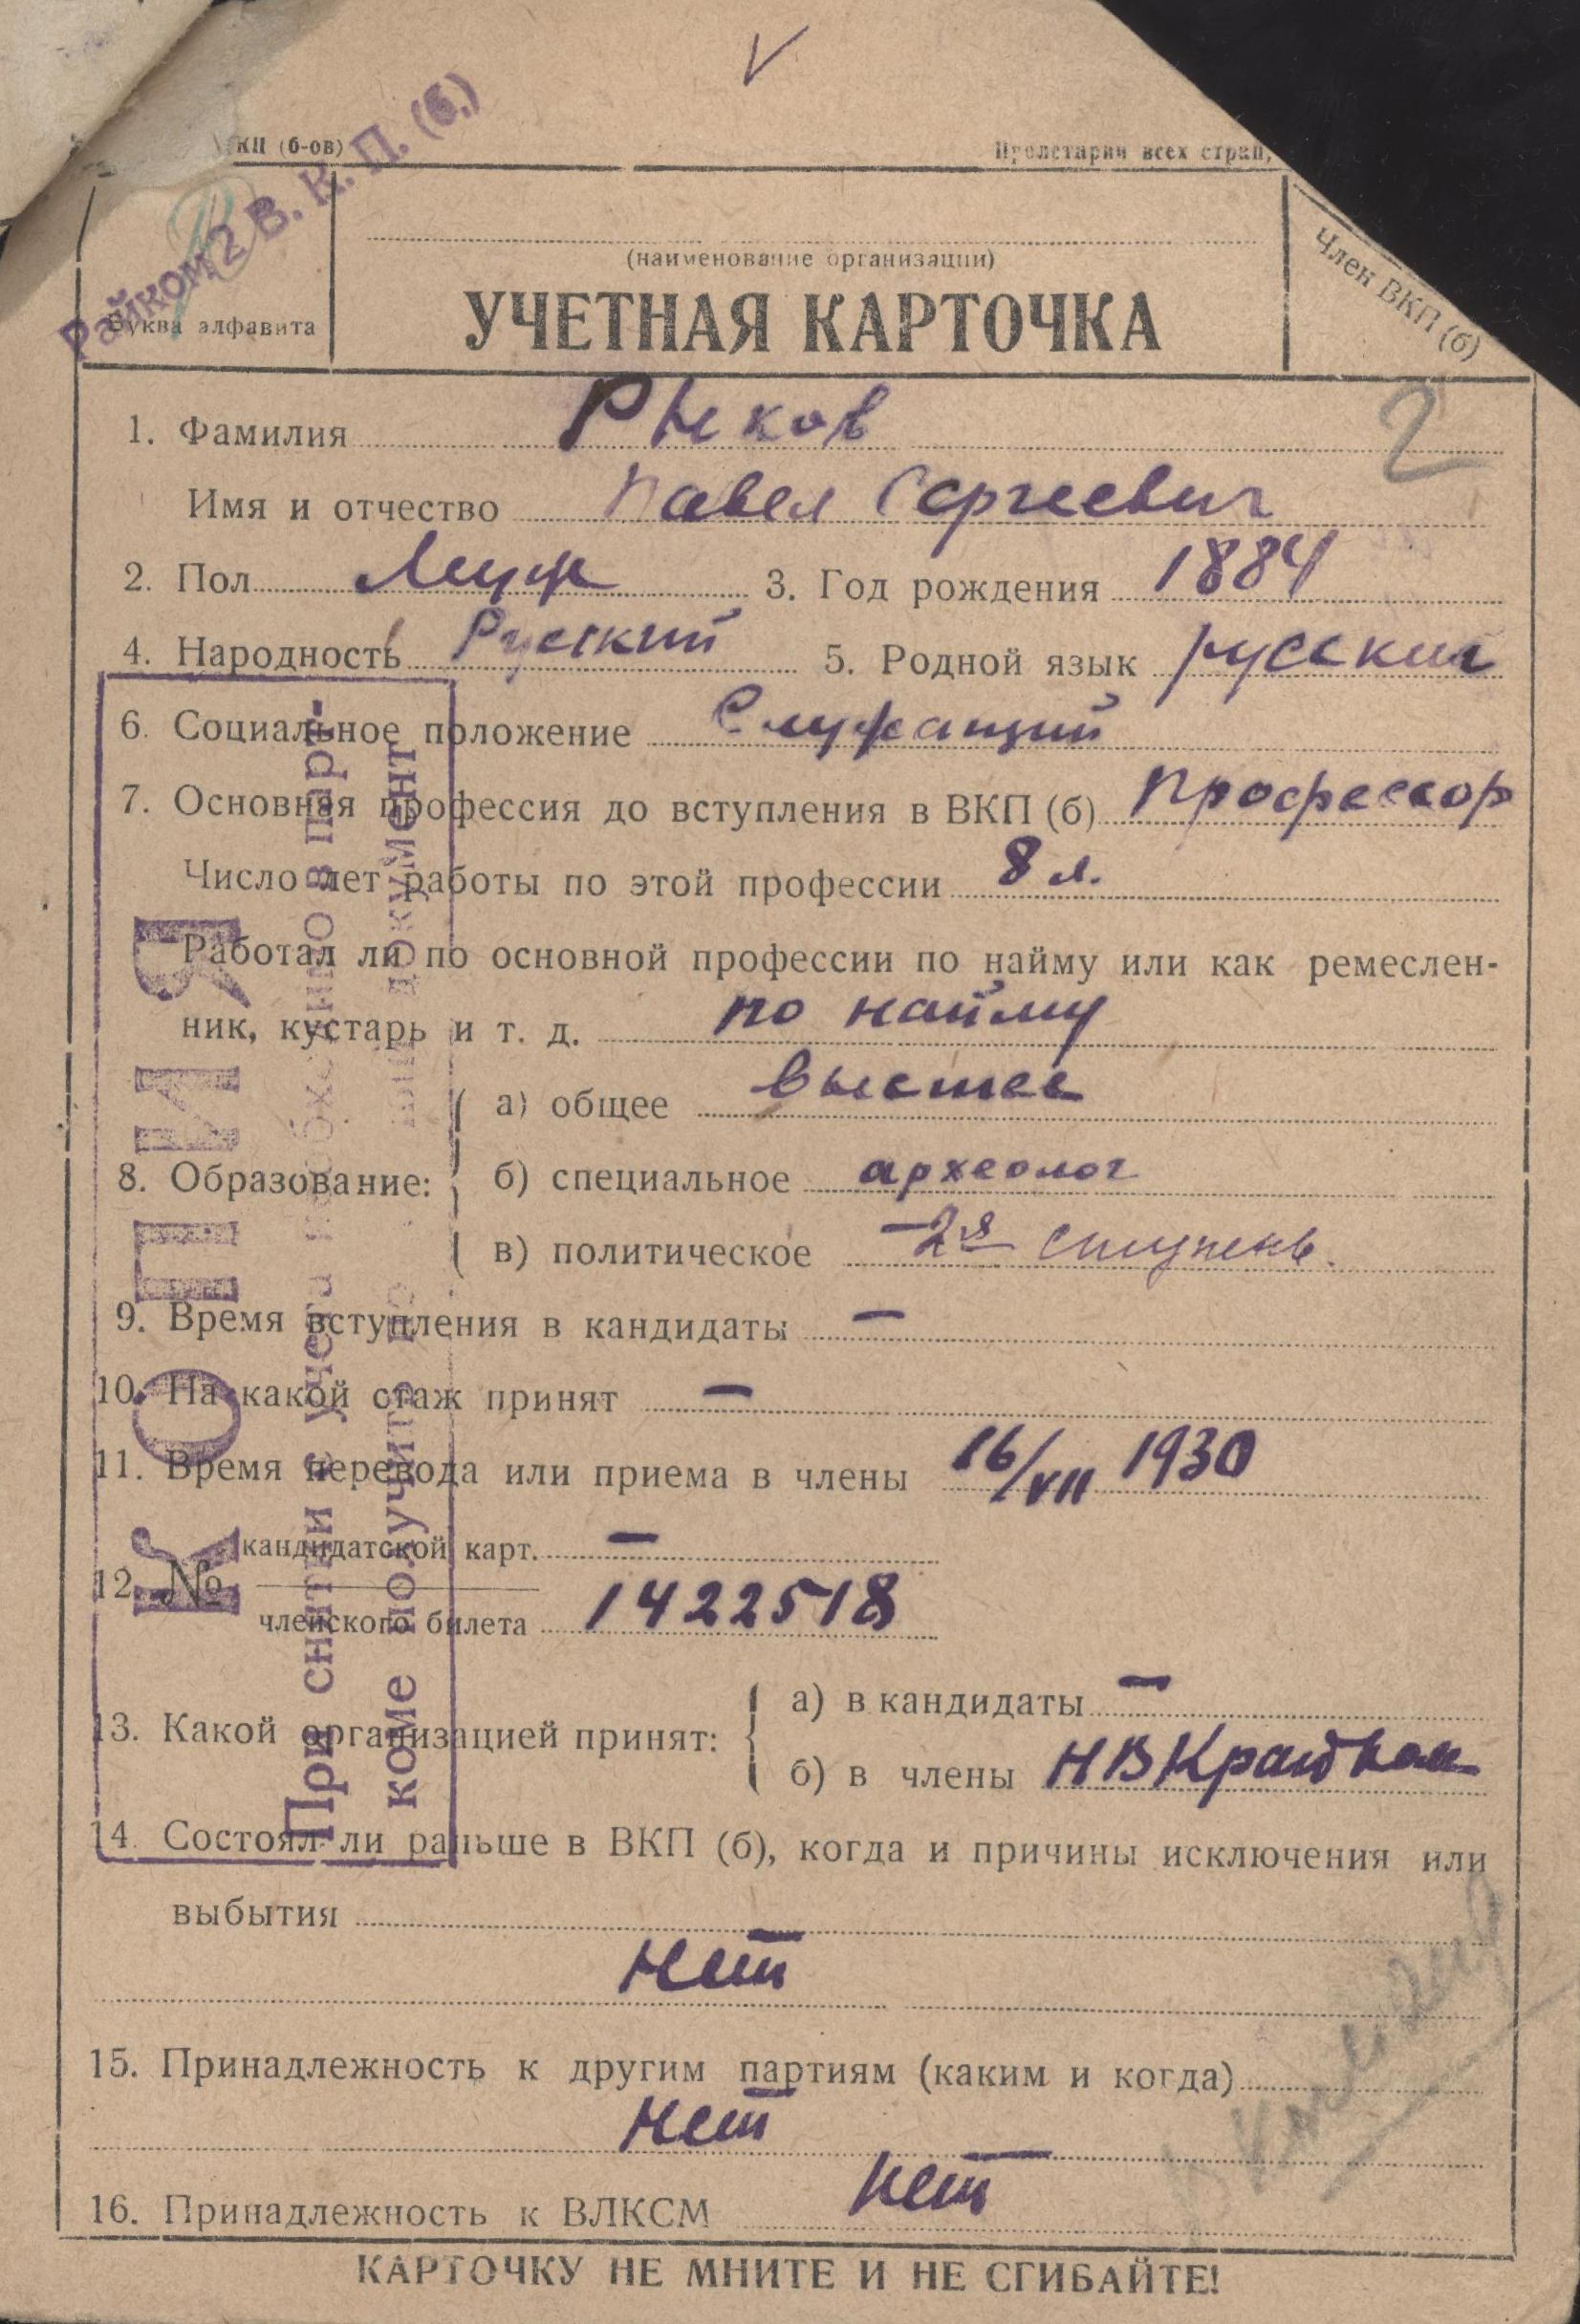 КП (б-ов)
Пролетарии всех стран,
Райком 2 В. К. П. (б.)
Р
(наименование организации)
Буква алфавита
УЧЕТНАЯ КАРТОЧКА
Член ВКП (б)
2
1. Фамилия Рыков
Имя и отчество Павел Сергеевич
2. Пол Муж 3. Год рождения 1884
4. Народность Русский 5. Родной язык русский
6. Социальное положение Служащий
7. Основная профессия до вступления в ВКП (б) Профессор
Число лет работы по этой профессии 8 л.
Работал ли по основной профессии по найму или как ремеслен-
ник, кустарь и т. д. по найму
8. Образование:
а) общее высшее
б) специальное археолог
в) политическое –2я ступень.
9. Время вступления в кандидаты —
10. На какой стаж принят —
11. Время перевода или приема в члены 16/VII 1930
12. №
кандидатской карт. —
членского билета 1422518
13. Какой организацией принят:
а) в кандидаты —
б) в члены НВКрайком
14. Состоял ли раньше в ВКП (б), когда и причины исключения или
выбытия
Нет
15. Принадлежность к другим партиям (каким и когда)
Нет
16. Принадлежность к ВЛКСМ Нет
КАРТОЧКУ НЕ МНИТЕ И НЕ СГИБАЙТЕ!
КОПИЯ
При снятии с учета необходимо в парт-
коме получить документ